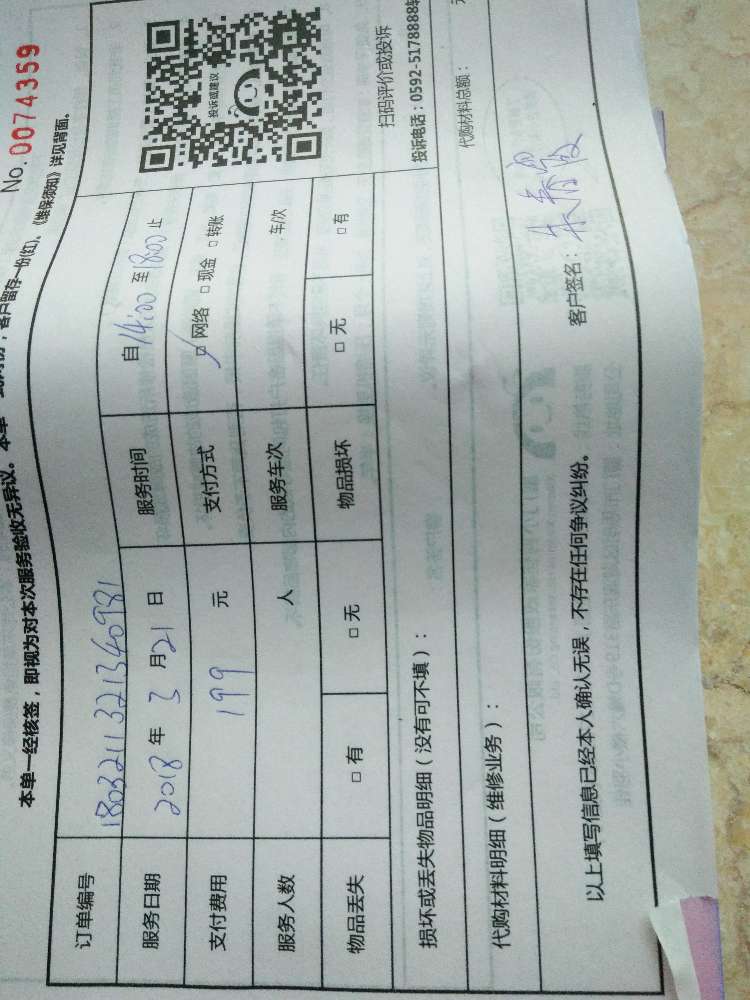 No. 0074359
本单一经核签，即视为对本次服务验收无异议。本单一式两份，客户留存一份(红)。《维保须知》详见背面。
订单编号 180321132134098
服务日期 2018 年 3 月 21 日 服务时间 自 14:00 至 18:00 止
支付费用 199 元 支付方式 □ 网络 □ 现金 □ 转账
服务人数 人 服务车次 车/次
物品丢失 □ 有 □ 无 物品损坏 □ 无 □ 有
投诉或建议
扫码评价或投诉
投诉电话：0592-5178888转
损坏或丢失物品明细（没有可不填）：
代购材料明细（维修业务）： 代购材料总额： 元
以上填写信息已经本人确认无误，不存在任何争议纠纷。 客户签名：